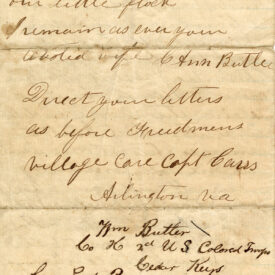 our little flock
I remain as ever your
devoted wife C Ann Butler
Direct your letters
as before Freedmens
village care Capt Carrs
Arlington va
Wm Butler
Co H 2d U S Colored Troops
Cedar Keys